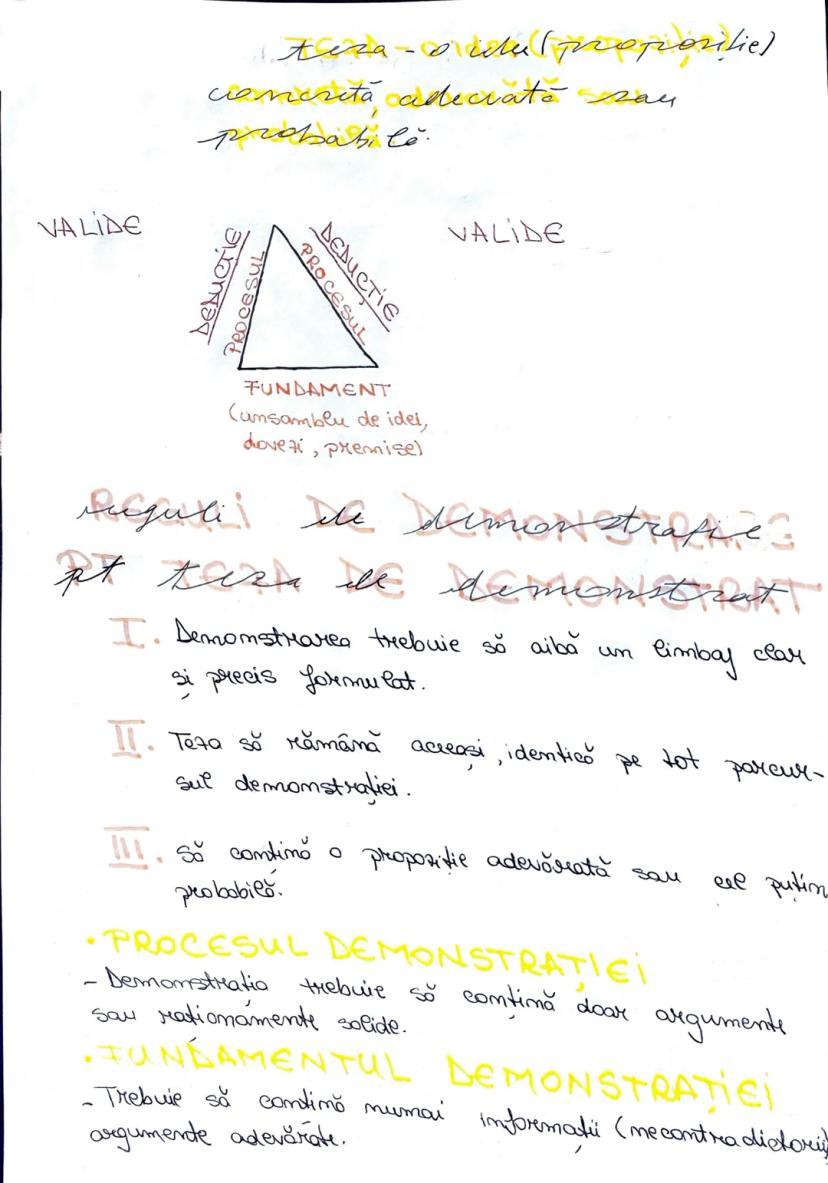 teza - o idee (propoziție)
concretă, adecvată sau
probabilă.
VALIDE
DEDUCȚIE
PROCESUL
DEDUCȚIE
PROCESUL
VALIDE
FUNDAMENT
(ansamblu de idei,
dovezi, premise)
REGULI DE DEMONSTRAȚIE
PT TEZA DE DEMONSTRAT
I. Demonstrarea trebuie să aibă un limbaj clar
și precis formulat.
II. Teza să rămână aceeași, identică pe tot parcur-
sul demonstrației.
III. Să conțină o propoziție adevărată sau cel puțin
probabilă.
• PROCESUL DEMONSTRAȚIEI
- Demonstrația trebuie să conțină doar argumente
sau raționamente solide.
• FUNDAMENTUL DEMONSTRAȚIEI
- Trebuie să conțină numai informații (necontradictorii)
argumente adevărate.